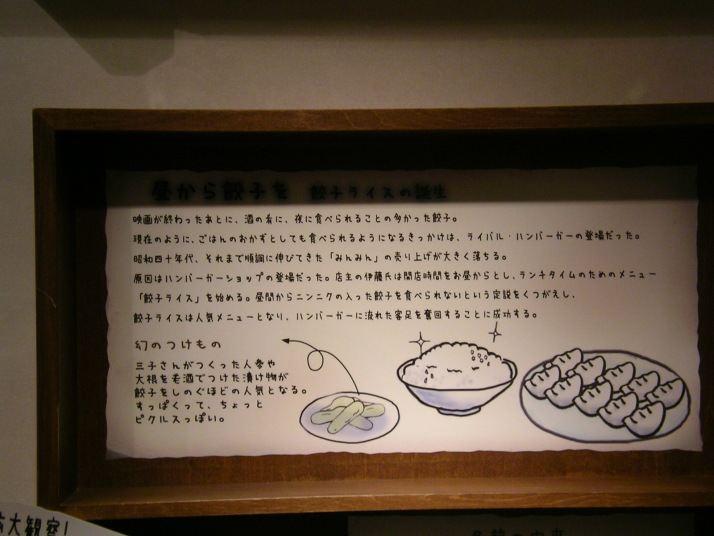 昼から餃子を 餃子ライスの誕生
映画が終わったあとに、酒の友に、夜に食べられることの多かった餃子。
現在のように、ごはんのおかずとしても食べられるようになるきっかけは、ライバル・ハンバーガーの登場だった。
昭和四十年代、それまで順調に伸びてきた「みんみん」の売り上げが大きく落ちる。
原因はハンバーガーショップの登場だった。店主の伊藤氏は開店時間をお昼からとし、ランチタイムのためのメニュー
「餃子ライス」を始める。昼間からニンニクの入った餃子を食べられないという定説をくつがえし、
餃子ライスは人気メニューとなり、ハンバーガーに流れた客足を奪回することに成功する。
幻のつけもの
三子さんがつくった人参や
大根を老酒でつけた漬け物が
餃子をしのぐほどの人気となる。
すっぱくって、ちょっと
ピクルスっぽい。
大観察!